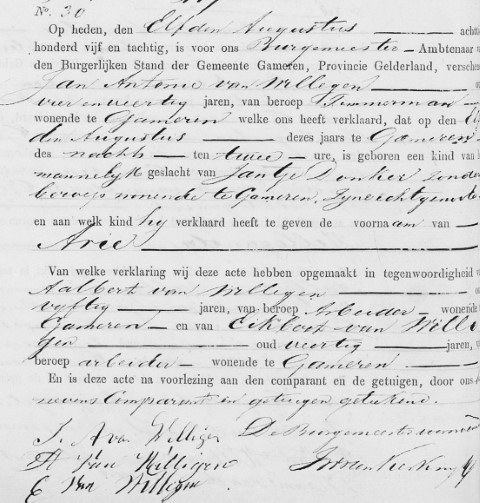 No. 30
Op heden, den Elfden Augustus achtt
honderd vijf en tachtig, is voor ons Burgemeester Ambtenaar v
den Burgerlijken Stand der Gemeente Gameren, Provincie Gelderland, versche
Jan Antonie van Willegen
vier en veertig jaren, van beroep Timmerman
wonende te Gameren welke ons heeft verklaard, dat op den El
den Augustus dezes jaars te Gameren
des nachts ten twee ure, is geboren een kind van h
mannelijk geslacht van Jantje Donker zonder
beroep wonende te Gameren, zyne echtgenoote
en aan welk kind hij verklaard heeft te geven de voornaam van
Arie
Van welke verklaring wij deze acte hebben opgemaakt in tegenwoordigheid v
Aalbert van Willegen
vyftig jaren, van beroep Arbeider wonende t
Gameren en van Eckbert van Wille
gen oud veertig jaren, v
beroep arbeider wonende te Gameren
En is deze acte na voorlezing aan den comparant en de getuigen, door ons
nevens Comparant en getuigen getekend.
J. A van Willigen De Burgemeester
A Van Willigen
E Van Willegen